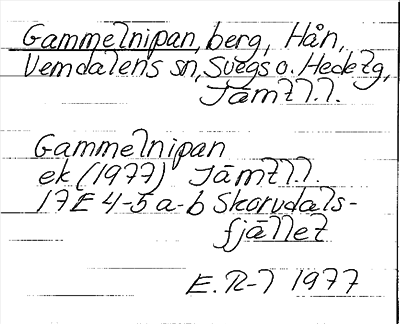 Gammelnipan, berg, Hån,
Vemdalens sn, Svegs o. Hedetg,
Jämtl.l.
Gammelnipan
ek (1977) Jämtl.l.
17E 4-5 a-b Skorvdals-
fjället
E. R-l 1977